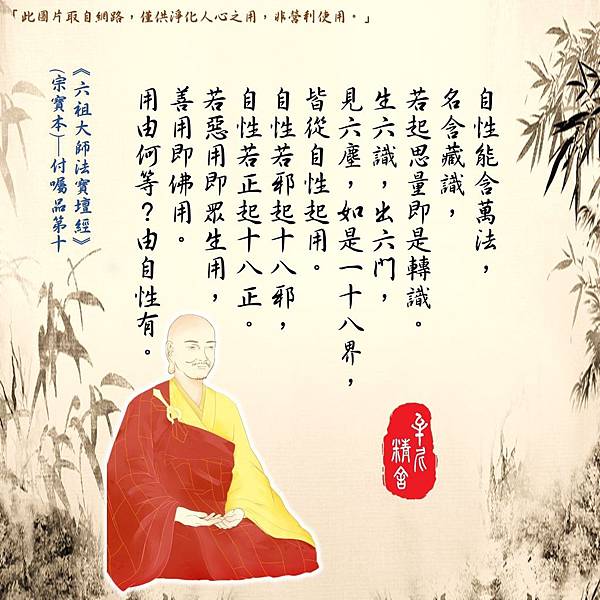 「此圖片取自網路，僅供淨化人心之用，非營利使用。」
自性能含萬法，
名含藏識，
若起思量即是轉識。
生六識，出六門，
見六塵，如是一十八界，
皆從自性起用。
自性若邪起十八邪，
自性若正起十八正。
若惡用即眾生用，
善用即佛用。
用由何等？由自性有。
《六祖大師法寶壇經》
(宗寶本)─付囑品第十
精舍